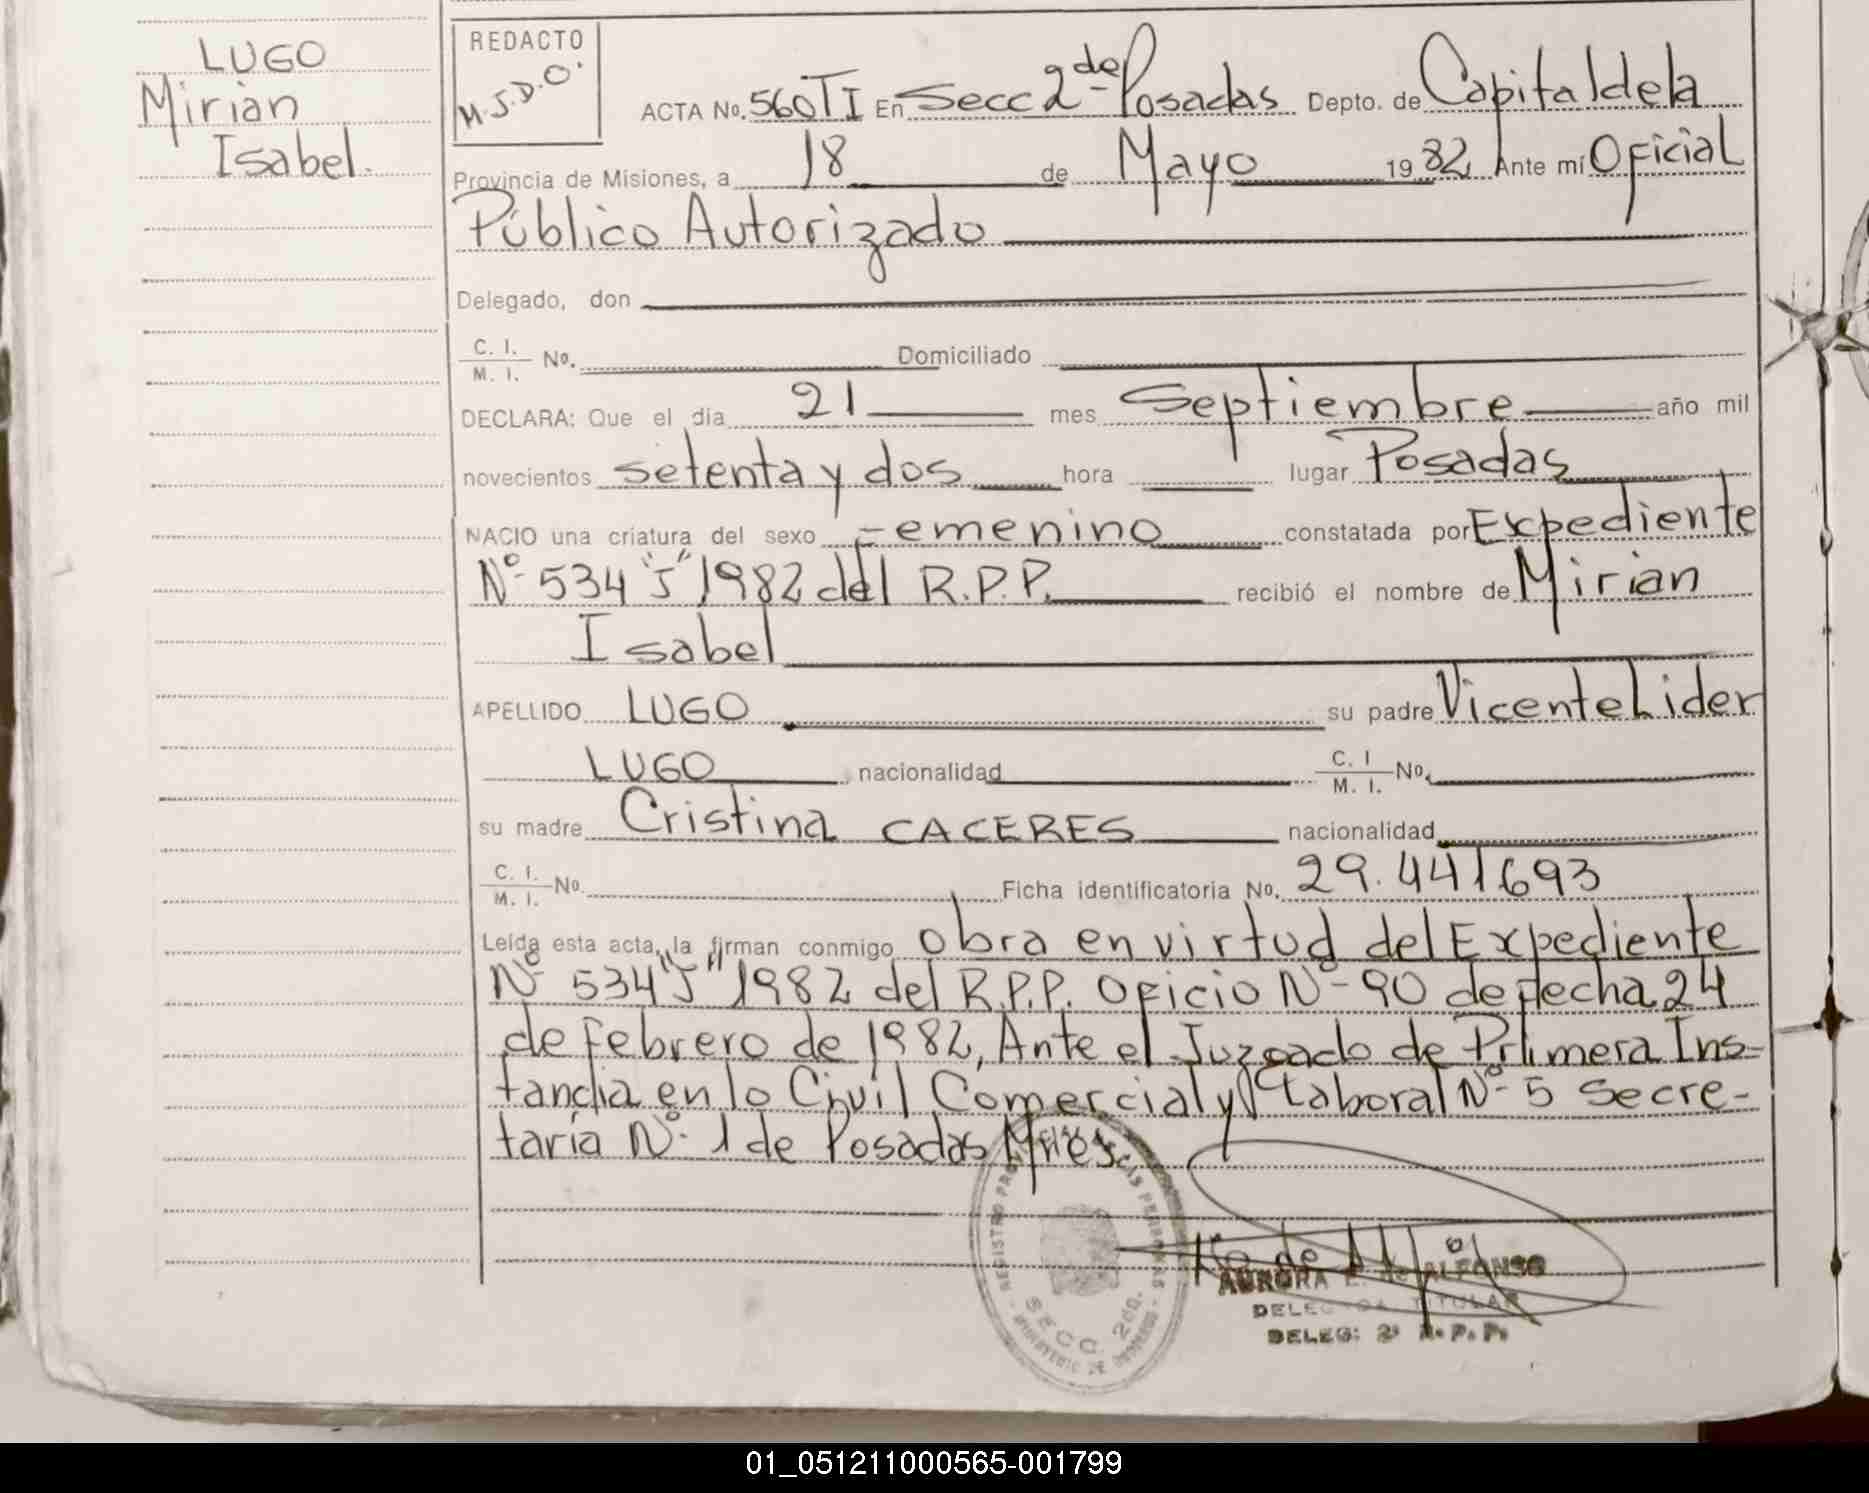 LUGO
Mirian
Isabel.
REDACTO
M.S.D.O.
ACTA No. 560 TI En Secc 2da de Posadas Depto. de Capital de la
Provincia de Misiones, a 18 de Mayo 1982 Ante mí Oficial
Público Autorizado
Delegado, don
C. I. M. I. No. Domiciliado
DECLARA: Que el día 21 mes Septiembre año mil
novecientos setenta y dos hora lugar Posadas
NACIO una criatura del sexo Femenino constatada por Expediente
Nº 534 "J" 1982 del R.P.P. recibió el nombre de Mirian
Isabel
APELLIDO LUGO su padre Vicente Lider
LUGO nacionalidad C. I M. I. No.
su madre Cristina CACERES nacionalidad
C. I. M. I. No. Ficha identificatoria No. 29.441693
Leída esta acta, la firman conmigo obra en virtud del Expediente
Nº 534 "J" 1982 del R.P.P. Oficio Nº 90 de fecha 24
de febrero de 1982, Ante el Juzgado de Primera Ins-
tancia en lo Civil Comercial y Laboral Nº 5 Secre-
taría Nº 1 de Posadas Mnes.
SECC. 2da.
AURORA E. de ALFONSO
DELEGADA TITULAR
DELEG: 2ª R.P.P.
01_051211000565-001799